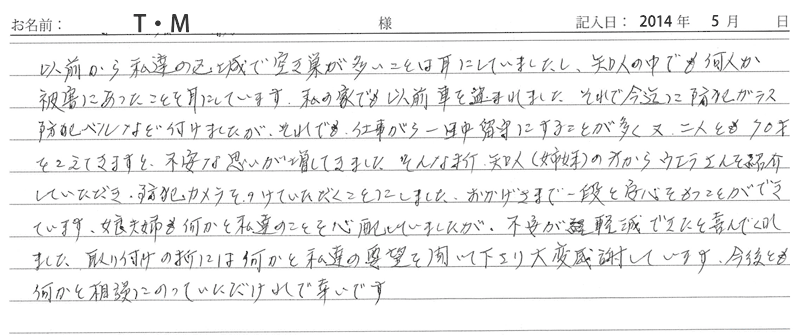 お名前： T・M 様 記入日： 2014 年 5 月 日
以前から私達の地域で空き巣が多いことは耳にしていましたし、知人の中でも何人か
被害にあったことを耳にしています。私の家でも以前車を盗まれました。それで今迄に防犯ガラス
防犯ベルなど付けましたが、それでも、仕事がら一日中留守にすることが多く又、二人とも70才
をこえてきますと、不安な思いが増してきました。そんな折、知人（姉妹）の方からウエラさんを紹介
していただき、防犯カメラをつけていただくことにしました。おかげさまで一段と安心をもつことができ
ています。娘夫婦も何かと私達のことを心配していましたが、不安が軽減できたと喜んでくれ
ました。取り付けの折には何かと私達の要望を聞いて下さり大変感謝しています。今後とも
何かと相談にのっていただければ幸いです